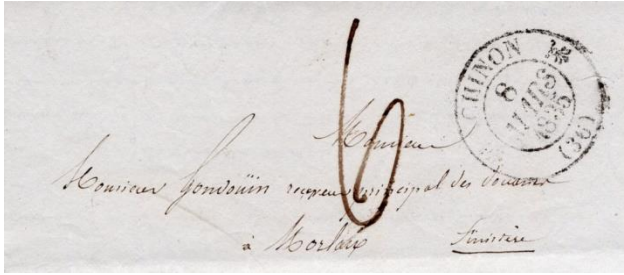 CHINON (36)
8
MARS
1836
6
Monsieur
Monsieur Gondoüin receveur principal des douanes
à Morlaix
Finistère